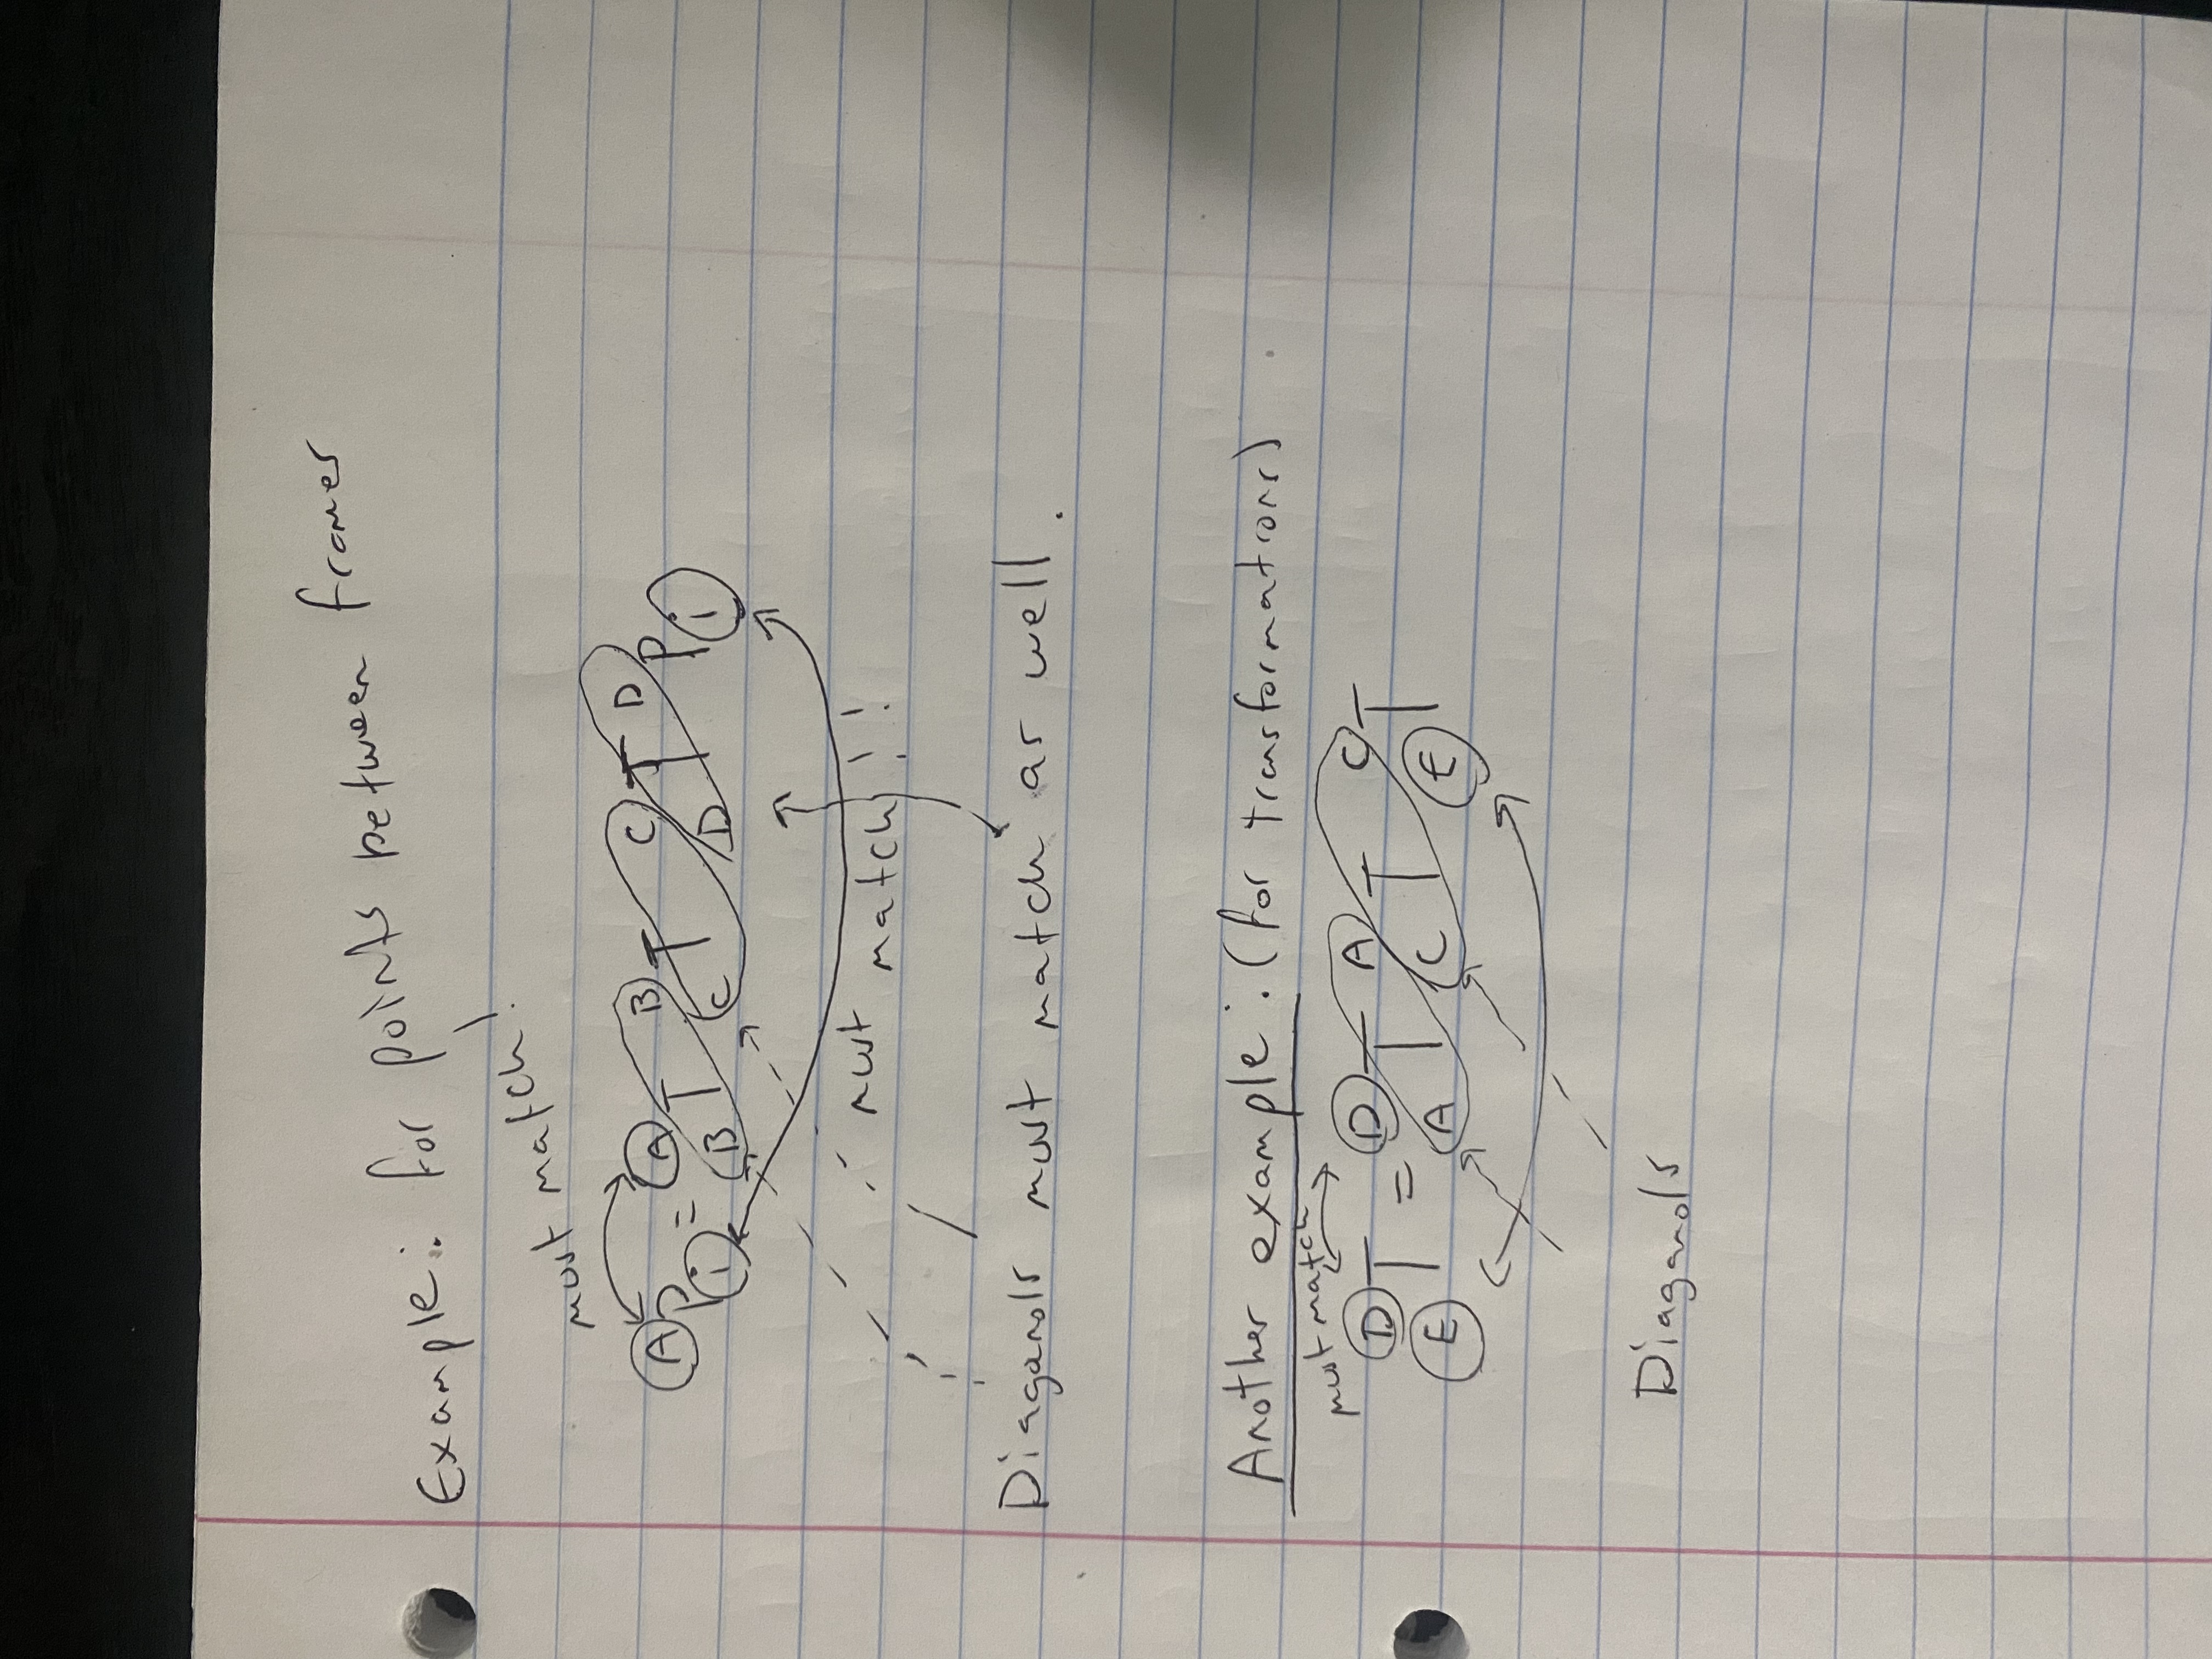 Example: for points between frames
must match!
A P i = A B T B C T C D T D P i
must match!!
Diaganols must match as well.
Another example: (for transformations)
must match
D E T = D A T A C T C E T
Diaganols